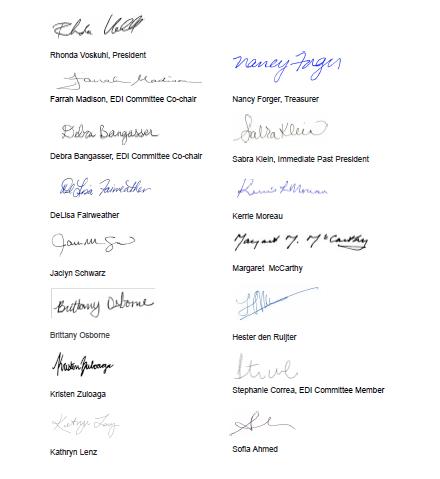 Rhonda Voskuhl, President
Farrah Madison
Farrah Madison, EDI Committee Co-chair
Debra Bangasser
Debra Bangasser, EDI Committee Co-chair
DeLisa Fairweather
DeLisa Fairweather
Jaclyn Schwarz
Brittany Osborne
Brittany Osborne
Kristen Zuloaga
Kristen Zuloaga
Kathryn Lenz
Nancy Forger
Nancy Forger, Treasurer
Sabra Klein
Sabra Klein, Immediate Past President
Kerrie Moreau
Margaret M. McCarthy
Margaret McCarthy
Hester den Ruijter
Stephanie Correa, EDI Committee Member
Sofia Ahmed